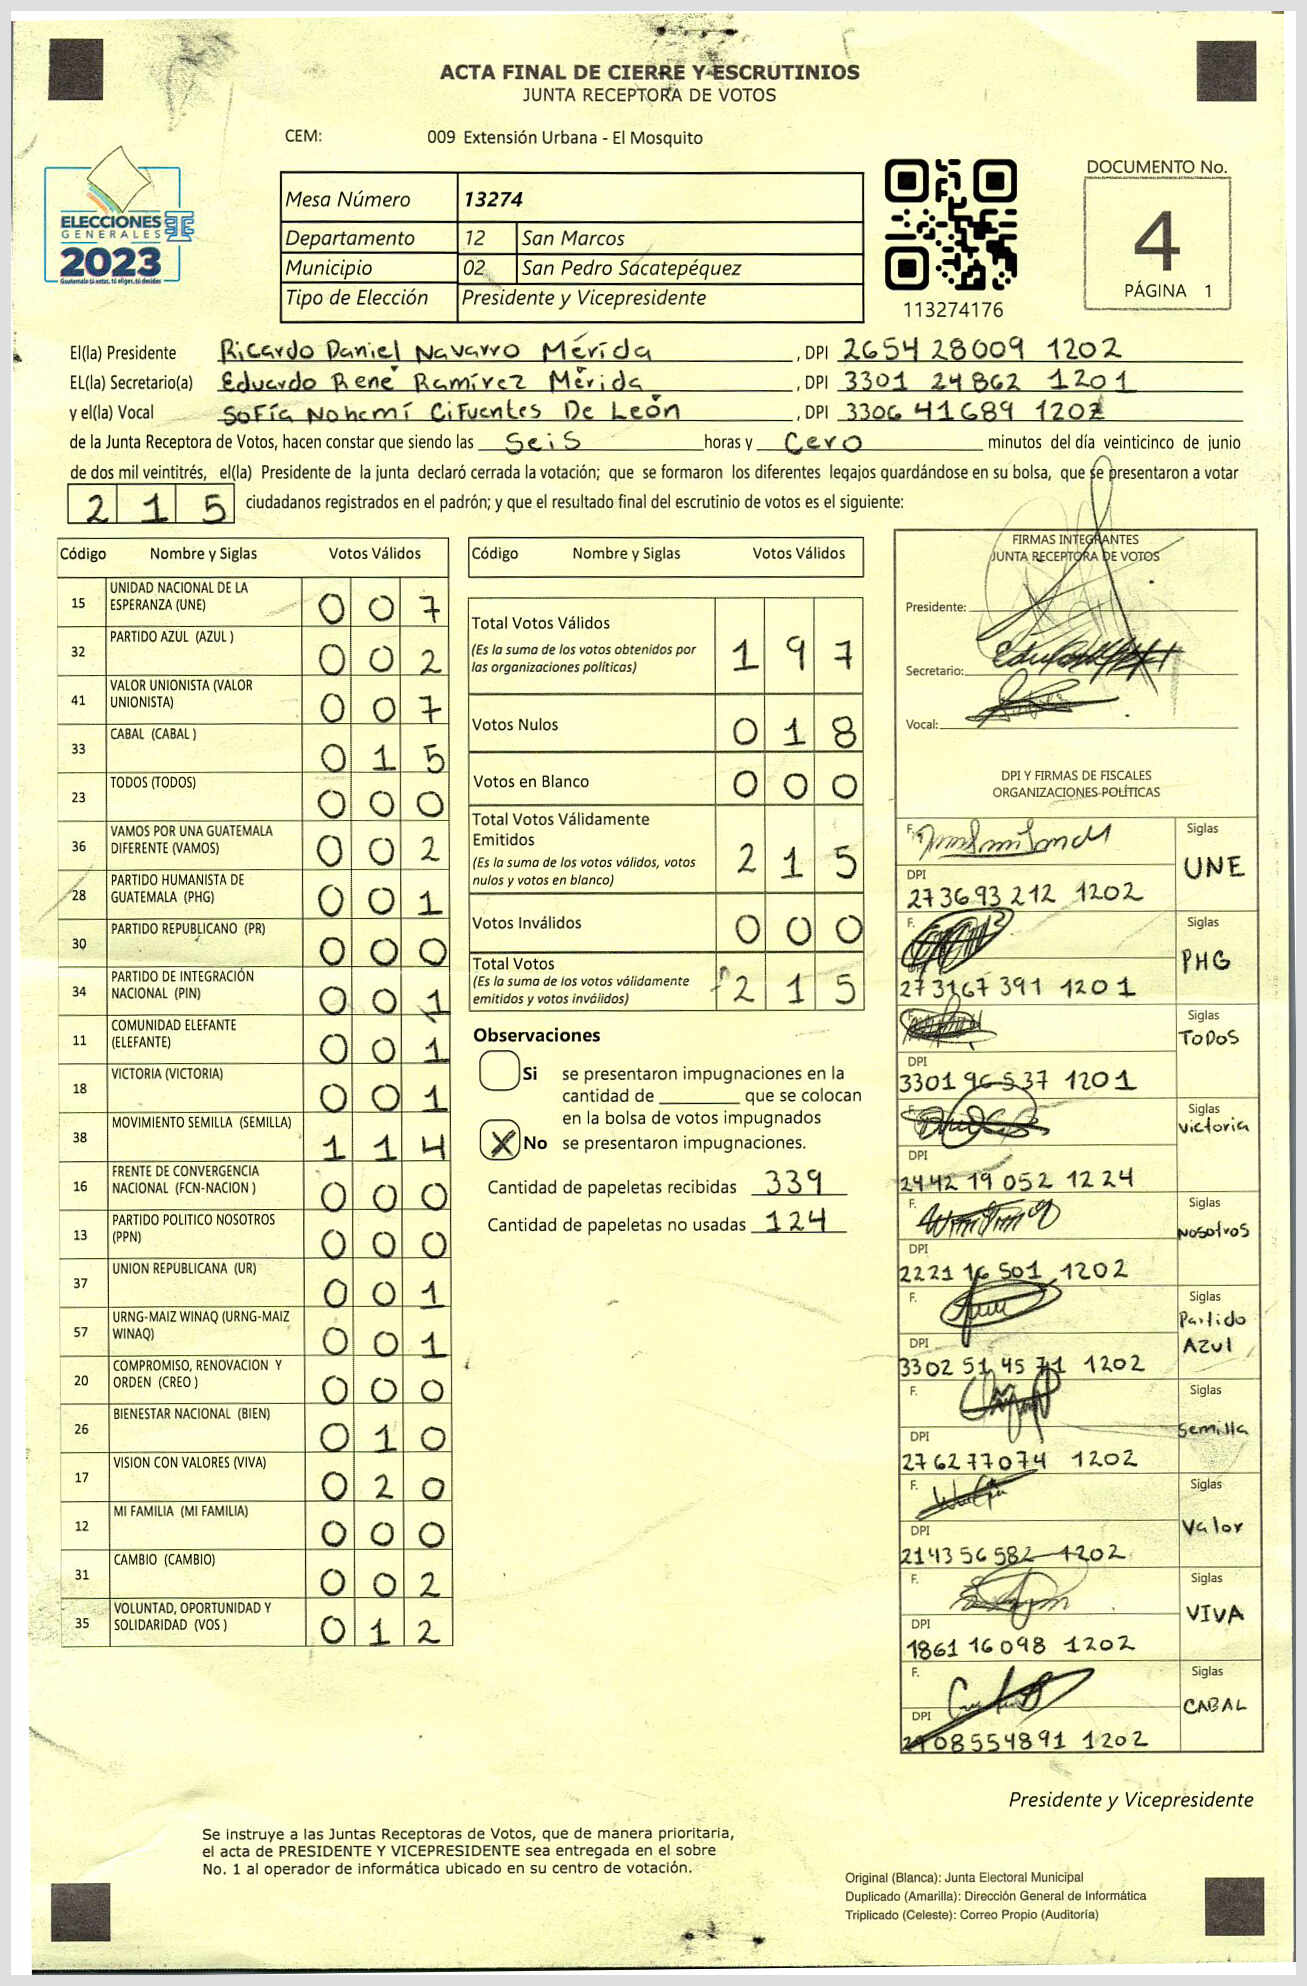 ACTA FINAL DE CIERRE Y ESCRUTINIOS
JUNTA RECEPTORA DE VOTOS
CEM: 009 Extensión Urbana - El Mosquito
ELECCIONES
GENERALES
2023
Guatemala tú votas, tú eliges, tú decides
Mesa Número 13274
Departamento 12 San Marcos
Municipio 02 San Pedro Sacatepéquez
Tipo de Elección Presidente y Vicepresidente
113274176
DOCUMENTO No.
4
PÁGINA 1
El(la) Presidente Ricardo Daniel Navarro Mérida, DPI 2654 28009 1202
EL(la) Secretario(a) Eduardo René Ramírez Mérida, DPI 3301 24862 1201
y el(la) Vocal Sofía Nohemí Cifuentes De León, DPI 3306 41689 1202
de la Junta Receptora de Votos, hacen constar que siendo las Seis horas y Cero minutos del día veinticinco de junio
de dos mil veintitrés, el(la) Presidente de la junta declaró cerrada la votación; que se formaron los diferentes legajos guardándose en su bolsa, que se presentaron a votar
215 ciudadanos registrados en el padrón; y que el resultado final del escrutinio de votos es el siguiente:
Código Nombre y Siglas Votos Válidos
15 UNIDAD NACIONAL DE LA ESPERANZA (UNE) 007
32 PARTIDO AZUL (AZUL ) 002
41 VALOR UNIONISTA (VALOR UNIONISTA) 007
33 CABAL (CABAL ) 015
23 TODOS (TODOS) 000
36 VAMOS POR UNA GUATEMALA DIFERENTE (VAMOS) 002
28 PARTIDO HUMANISTA DE GUATEMALA (PHG) 001
30 PARTIDO REPUBLICANO (PR) 000
34 PARTIDO DE INTEGRACIÓN NACIONAL (PIN) 001
11 COMUNIDAD ELEFANTE (ELEFANTE) 001
18 VICTORIA (VICTORIA) 001
38 MOVIMIENTO SEMILLA (SEMILLA) 114
16 FRENTE DE CONVERGENCIA NACIONAL (FCN-NACION ) 000
13 PARTIDO POLITICO NOSOTROS (PPN) 000
37 UNION REPUBLICANA (UR) 001
57 URNG-MAIZ WINAQ (URNG-MAIZ WINAQ) 001
20 COMPROMISO, RENOVACION Y ORDEN (CREO ) 000
26 BIENESTAR NACIONAL (BIEN) 010
17 VISION CON VALORES (VIVA) 020
12 MI FAMILIA (MI FAMILIA) 000
31 CAMBIO (CAMBIO) 002
35 VOLUNTAD, OPORTUNIDAD Y SOLIDARIDAD (VOS ) 012
Código Nombre y Siglas Votos Válidos
Total Votos Válidos 197
(Es la suma de los votos obtenidos por
las organizaciones políticas)
Votos Nulos 018
Votos en Blanco 000
Total Votos Válidamente
Emitidos 215
(Es la suma de los votos válidos, votos
nulos y votos en blanco)
Votos Inválidos 000
Total Votos 215
(Es la suma de los votos válidamente
emitidos y votos inválidos)
Observaciones
Si se presentaron impugnaciones en la
cantidad de ________ que se colocan
en la bolsa de votos impugnados
X No se presentaron impugnaciones.
Cantidad de papeletas recibidas 339
Cantidad de papeletas no usadas 124
FIRMAS INTEGRANTES
JUNTA RECEPTORA DE VOTOS
Presidente:
Secretario:
Vocal:
DPI Y FIRMAS DE FISCALES
ORGANIZACIONES POLÍTICAS
F. Siglas UNE
DPI 2736 93 212 1202
F. Siglas PHG
DPI 273167 391 1201
F. Siglas TODOS
DPI 3301 96537 1201
F. Siglas victoria
DPI 2442 19 052 1224
F. Siglas Nosotros
DPI 2221 16 501 1202
F. Siglas Partido Azul
DPI 3302 51 45 71 1202
F. Siglas Semilla
DPI 276277074 1202
F. Siglas Valor
DPI 214356582 1202
F. Siglas VIVA
DPI 1861 16098 1202
F. Siglas CABAL
DPI 08554891 1202
Presidente y Vicepresidente
Se instruye a las Juntas Receptoras de Votos, que de manera prioritaria,
el acta de PRESIDENTE Y VICEPRESIDENTE sea entregada en el sobre
No. 1 al operador de informática ubicado en su centro de votación.
Original (Blanca): Junta Electoral Municipal
Duplicado (Amarilla): Dirección General de Informática
Triplicado (Celeste): Correo Propio (Auditoría)